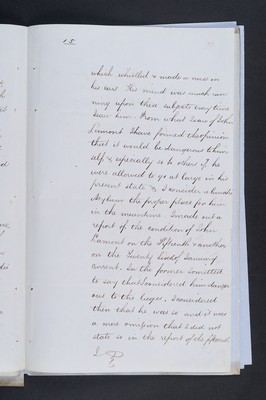 15
which whistled & made a noise in
his ears. His mind was much run
ning upon these subjects every time
I saw him. From what I saw of John
Lamont I have formed the opinion
that it would be dangerous to him
self & especially so to others if he
were allowed to go at large in his
present state & I consider a lunatic
Asylum the proper place for him
in the meantime. I made out a
report of the condition of John
Lamont on the fifteenth & another
on the Twenty third of January
current. In the former I omitted
to say that I considered him danger
ous to the lieges. I considered
then that he was so and it was
a mere omission that I did not
state so in the report of the fifteenth